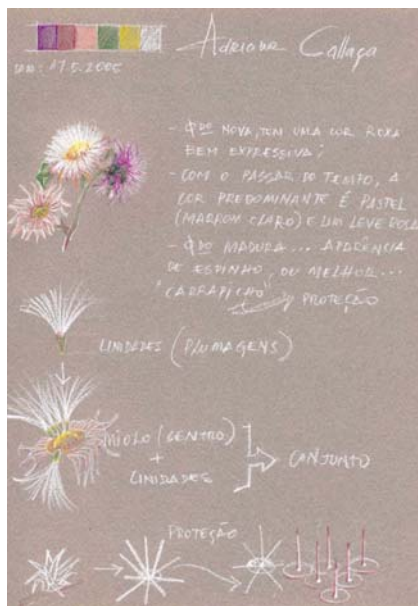 Adriana Callaça
17.5.2005
- Qdo NOVA, TEM UMA COR ROXA
BEM EXPRESSIVA;
- COM O PASSAR DO TEMPO, A
COR PREDOMINANTE É PASTEL
(MARROM CLARO) E UM LEVE ROSA
- Qdo MADURA... APARÊNCIA
DE ESPINHO, OU MELHOR...
"CARRAPICHO"
PROTEÇÃO
UNIDADES (PLUMAGENS)
MIOLO (CENTRO)
+
UNIDADES
CONJUNTO
PROTEÇÃO